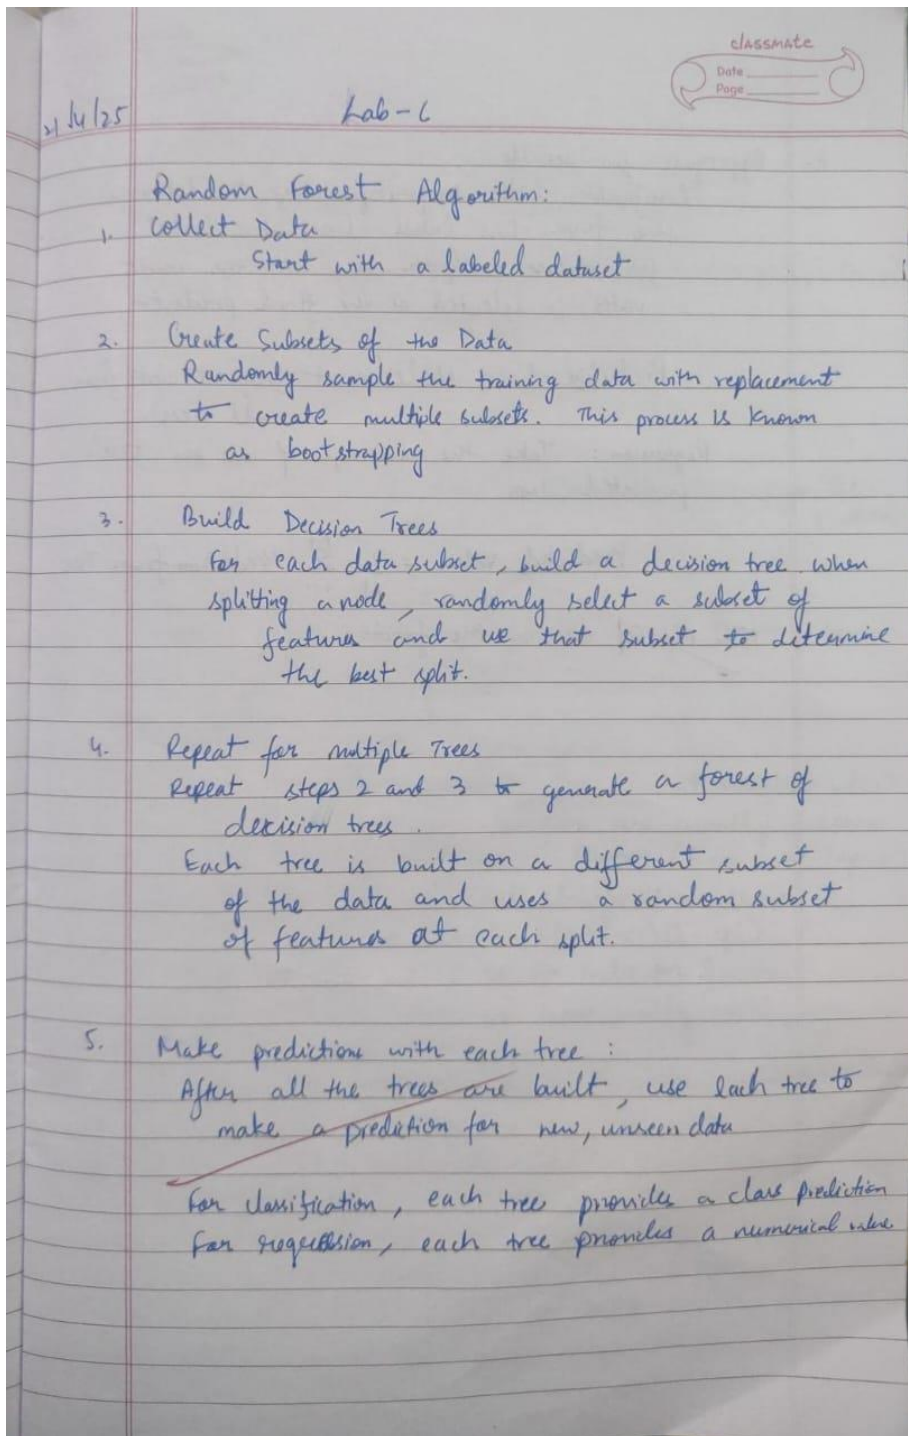 classmate
Date
Page
21/4/25
Lab-6
Random Forest Algorithm:
1. Collect Data
Start with a labeled dataset
2. Create Subsets of the Data
Randomly sample the training data with replacement
to create multiple subsets. This process is known
as bootstrapping
3. Build Decision Trees
For each data subset, build a decision tree. when
splitting a node, randomly select a subset of
features and use that subset to determine
the best split.
4. Repeat for multiple Trees
Repeat steps 2 and 3 to generate a forest of
decision trees.
Each tree is built on a different subset
of the data and uses a random subset
of features at each split.
5. Make predictions with each tree :
After all the trees are built, use each tree to
make a prediction for new, unseen data
For classification, each tree provides a class prediction
For regression, each tree provides a numerical value